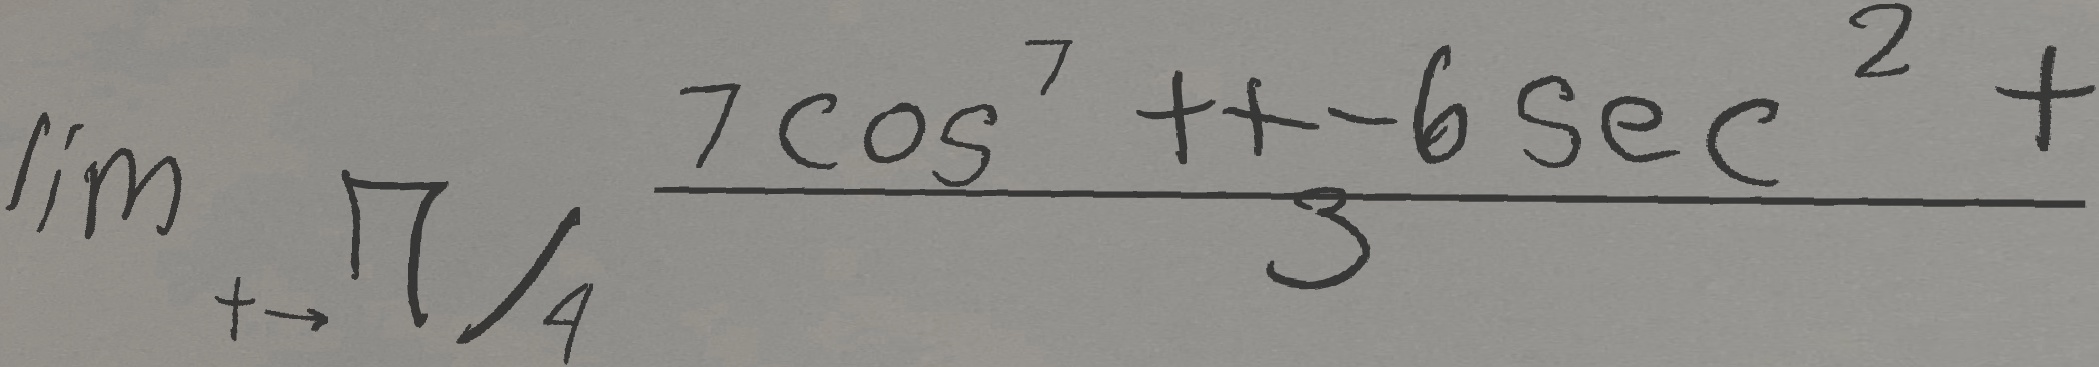 \lim_{t \to \pi/4} \frac{7\cos^7 t + t - 6\sec^2 t}{3}